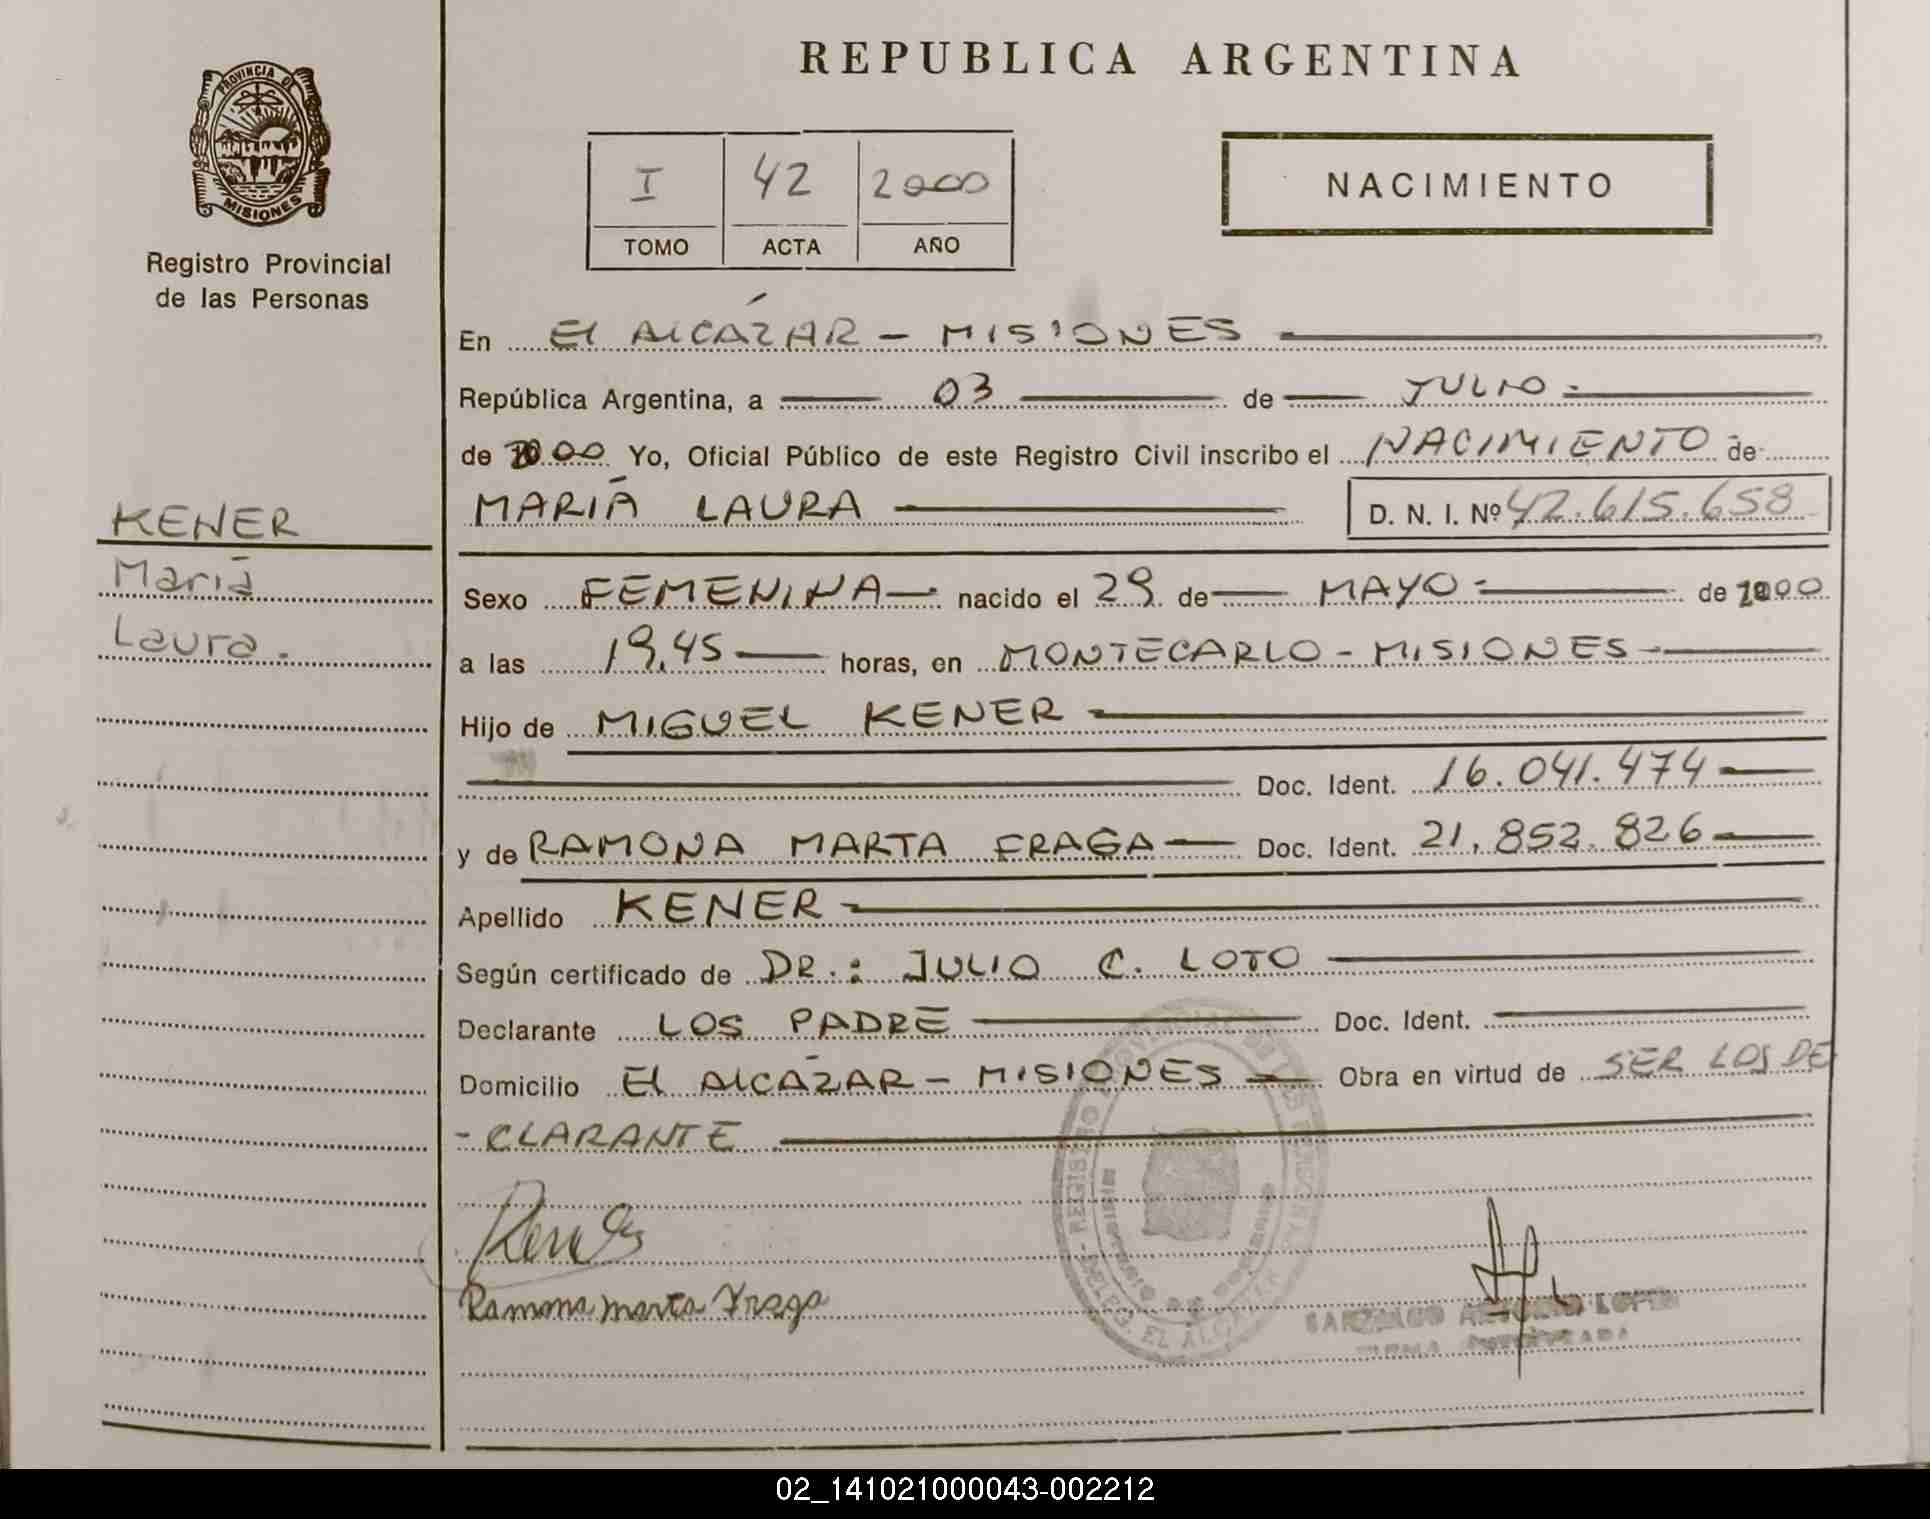 REPUBLICA ARGENTINA
PROVINCIA DE
MISIONES
Registro Provincial
de las Personas
I 42 2000
TOMO ACTA AÑO
NACIMIENTO
En El ALCÁZAR - MISIONES
República Argentina, a 03 de JULIO
de 2000 Yo, Oficial Público de este Registro Civil inscribo el NACIMIENTO de
MARIÁ LAURA D. N. I. Nº 42.615.658
KENER
Mariá
Laura.
Sexo FEMENINA nacido el 29 de MAYO de 2000
a las 19,45 horas, en MONTECARLO - MISIONES
Hijo de MIGUEL KENER
Doc. Ident. 16.041.474
y de RAMONA MARTA FRAGA Doc. Ident. 21.852.826
Apellido KENER
Según certificado de DR.: JULIO C. LOTO
Declarante LOS PADRE Doc. Ident.
Domicilio El ALCÁZAR - MISIONES Obra en virtud de SER LOS DE
- CLARANTE
Ramona Marta Fraga
EL ALCAZAR
02_141021000043-002212